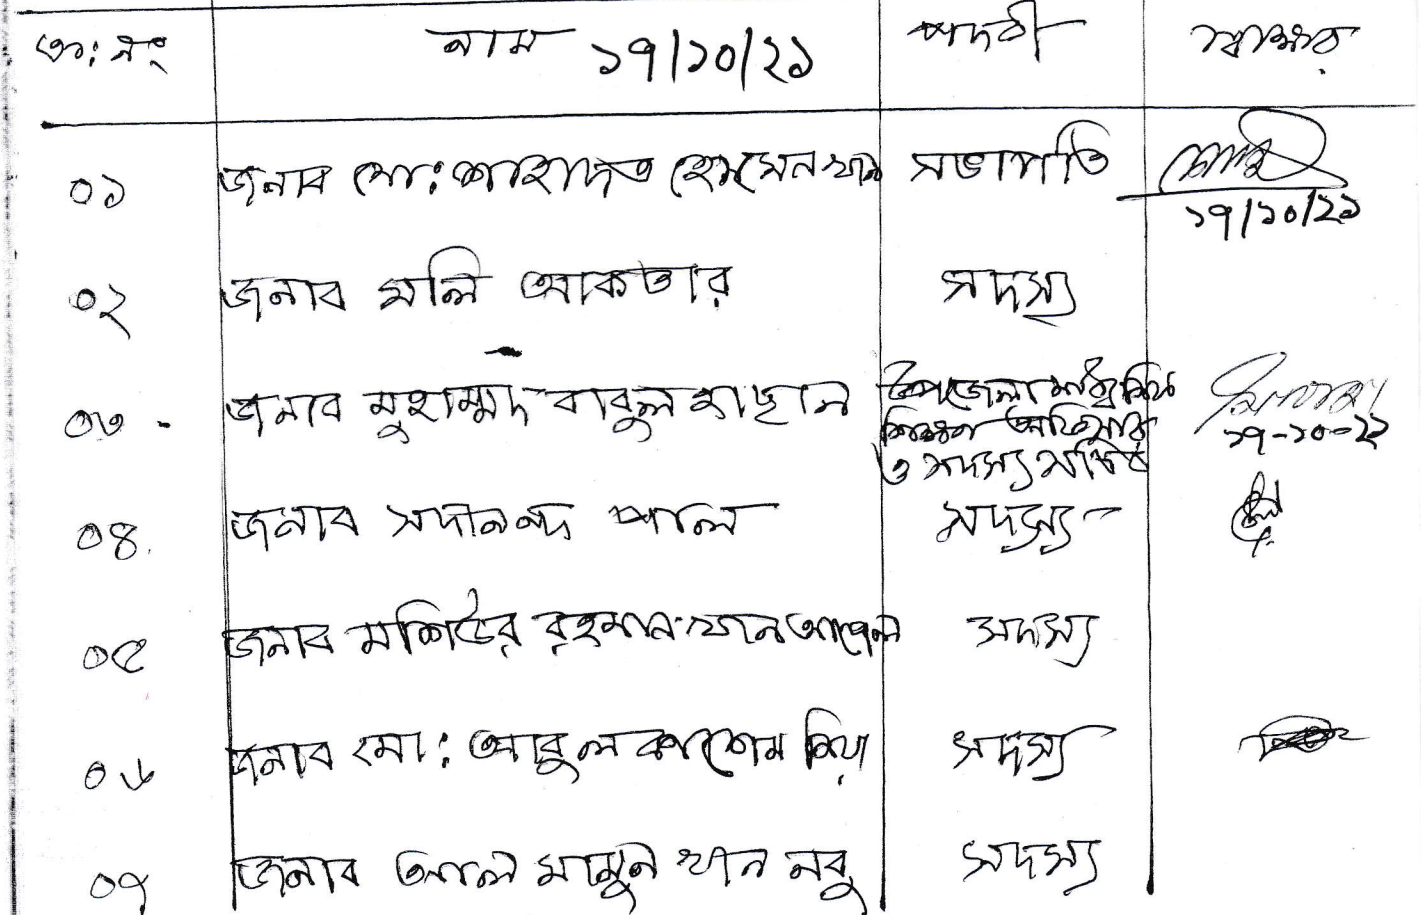 ক্র: নং নাম ১৭/১০/২১ পদবী স্বাক্ষর
০১ জনাব মো: শাহাদত হোসেন খান সভাপতি
১৭/১০/২১
০২ জনাব মলি আকতার সদস্য
০৩ জনাব মুহাম্মদ বাবুল হাছান উপজেলা মাধ্যমিক
শিক্ষা অফিসার ১৭-১০-২১
ও সদস্য সচিব
০৪ জনাব সদানন্দ পাল সদস্য
০৫ জনাব মশিউর রহমান খান আপেল সদস্য
০৬ জনাব মো: আবুল কাশেম মিয়া সদস্য
০৭ জনাব আল মামুন খান নবু সদস্য